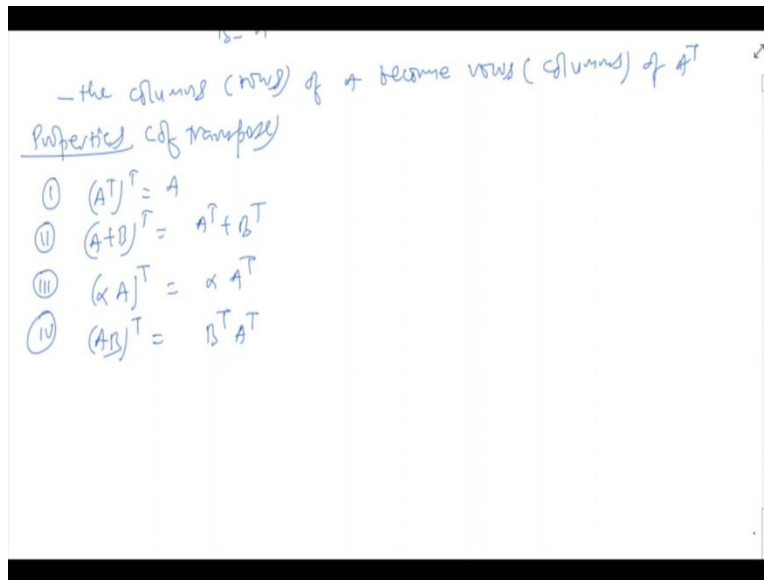 - the columns (rows) of A become rows (columns) of A^T
Properties (of transpose)
(I) (A^T)^T = A
(II) (A+B)^T = A^T + B^T
(III) (αA)^T = α A^T
(IV) (AB)^T = B^T A^T